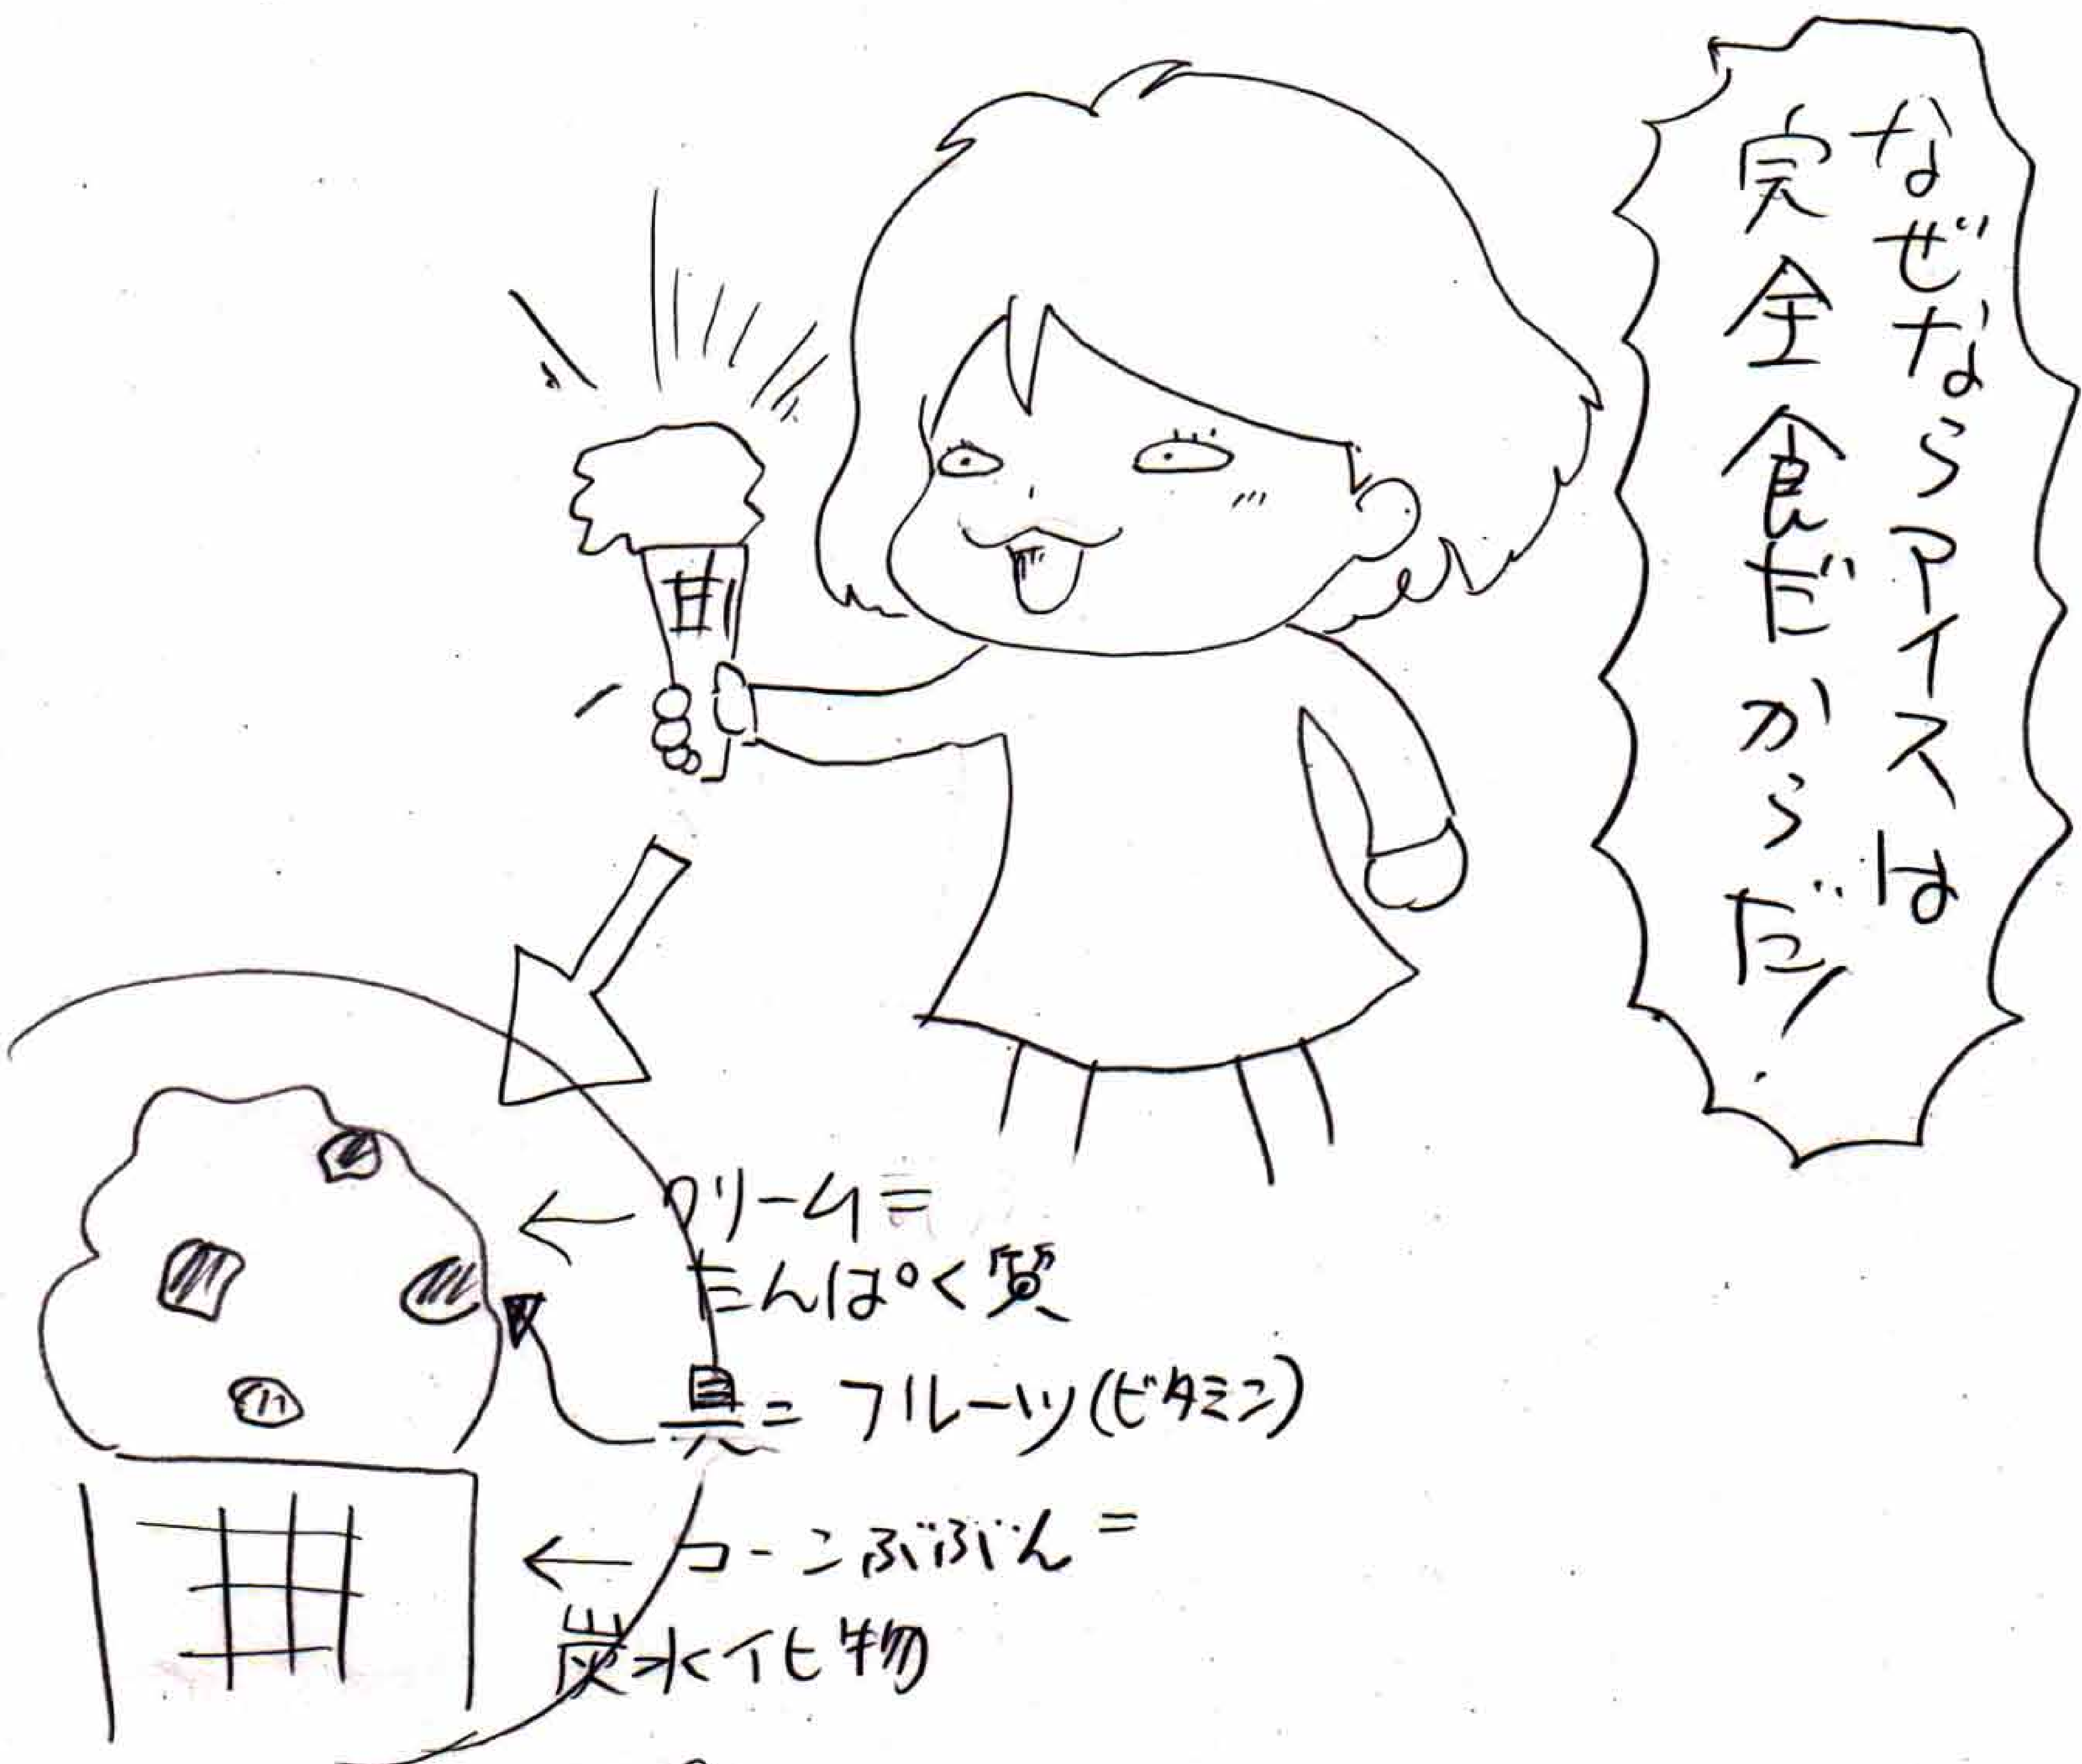 なぜならアイスは
完全食だからだ!
クリーム=
たんぱく質
具=フルーツ(ビタミン)
コーンぶぶん=
炭水化物